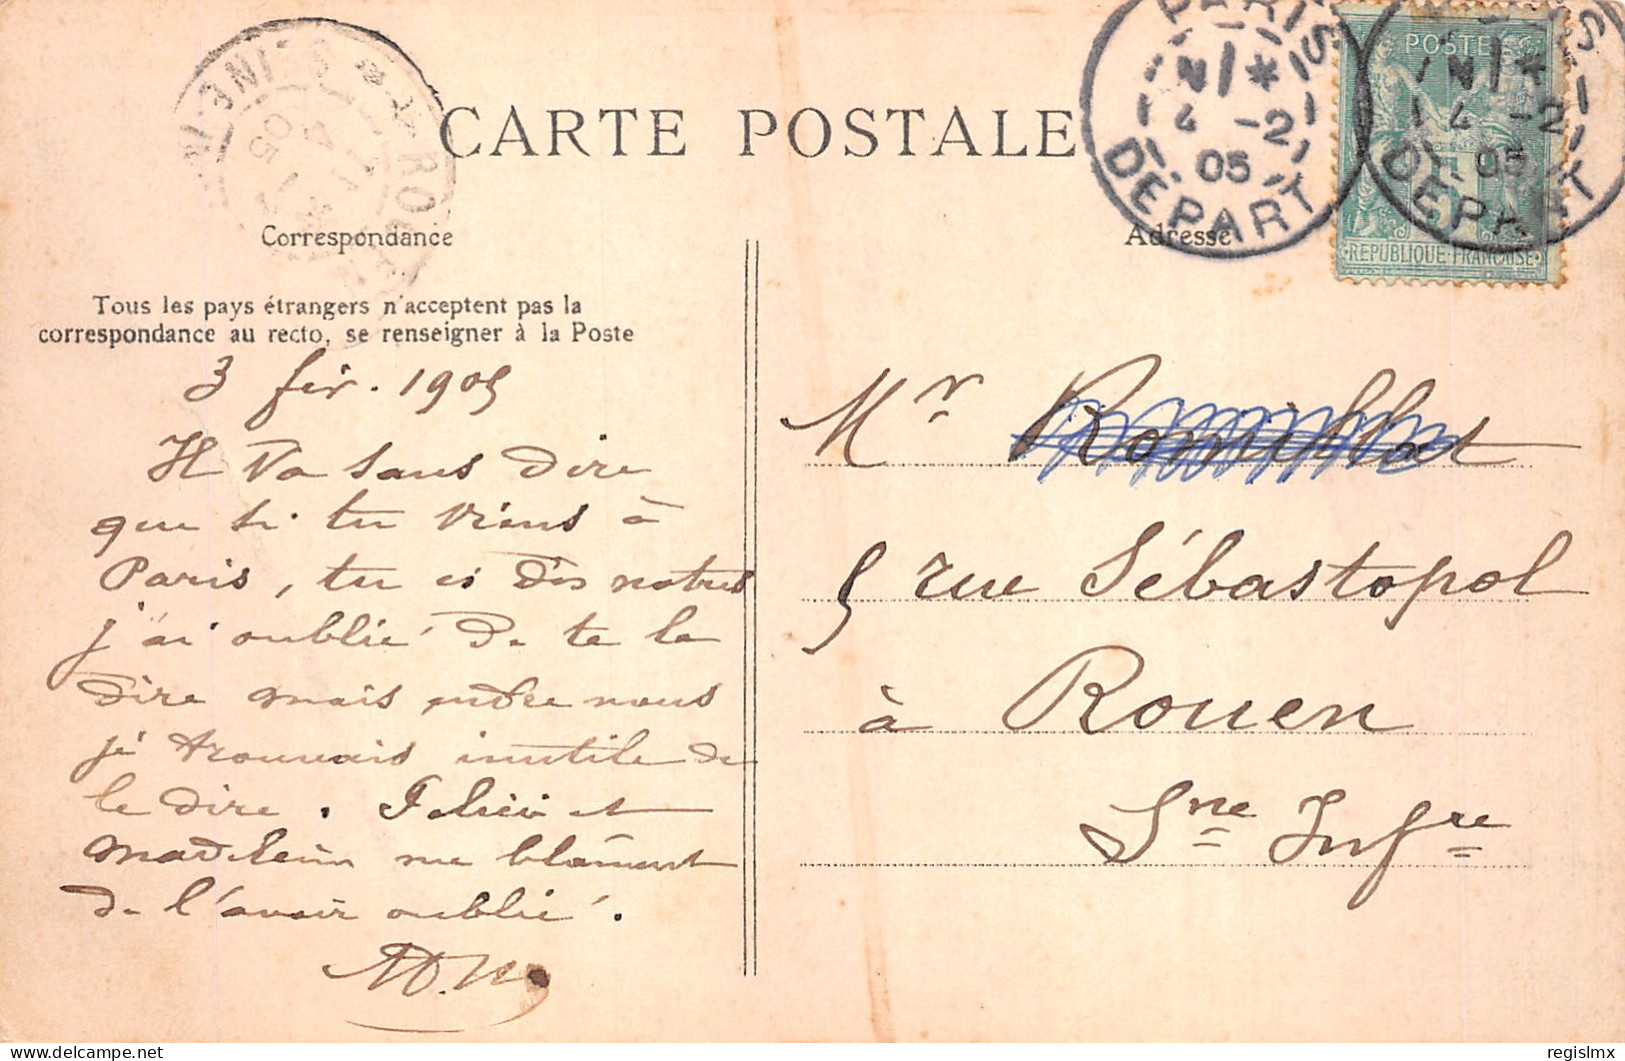 CARTE POSTALE
Correspondance
Adresse
Tous les pays étrangers n'acceptent pas la
correspondance au recto, se renseigner à la Poste
PARIS
N *
4 -2
05
DEPART
4 -2
05
DEPART
POSTE
REPUBLIQUE FRANCAISE
ROUEN
05
3 fév. 1905
Il va sans dire
que si tu viens à
Paris, tu es des notres
j'ai oublié de te le
dire mais entre nous
je trouvais inutile de
le dire. Félicie et
Madeleine me blâment
de l'avoir oublié.
Mr
5 rue Sébastopol
à Rouen
Sne Infre
regislmx